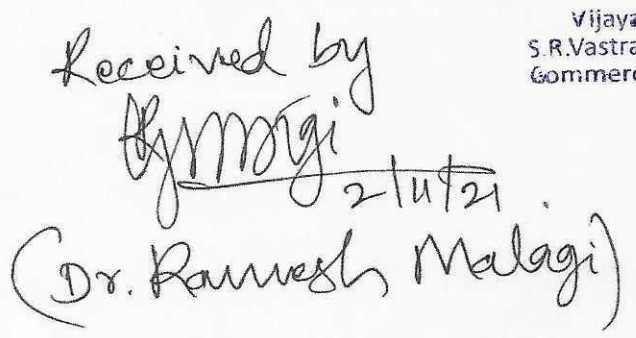 Vijaya
S.R.Vastra
Commerc
Received by
2/11/21.
(Dr. Ramesh Malagi)